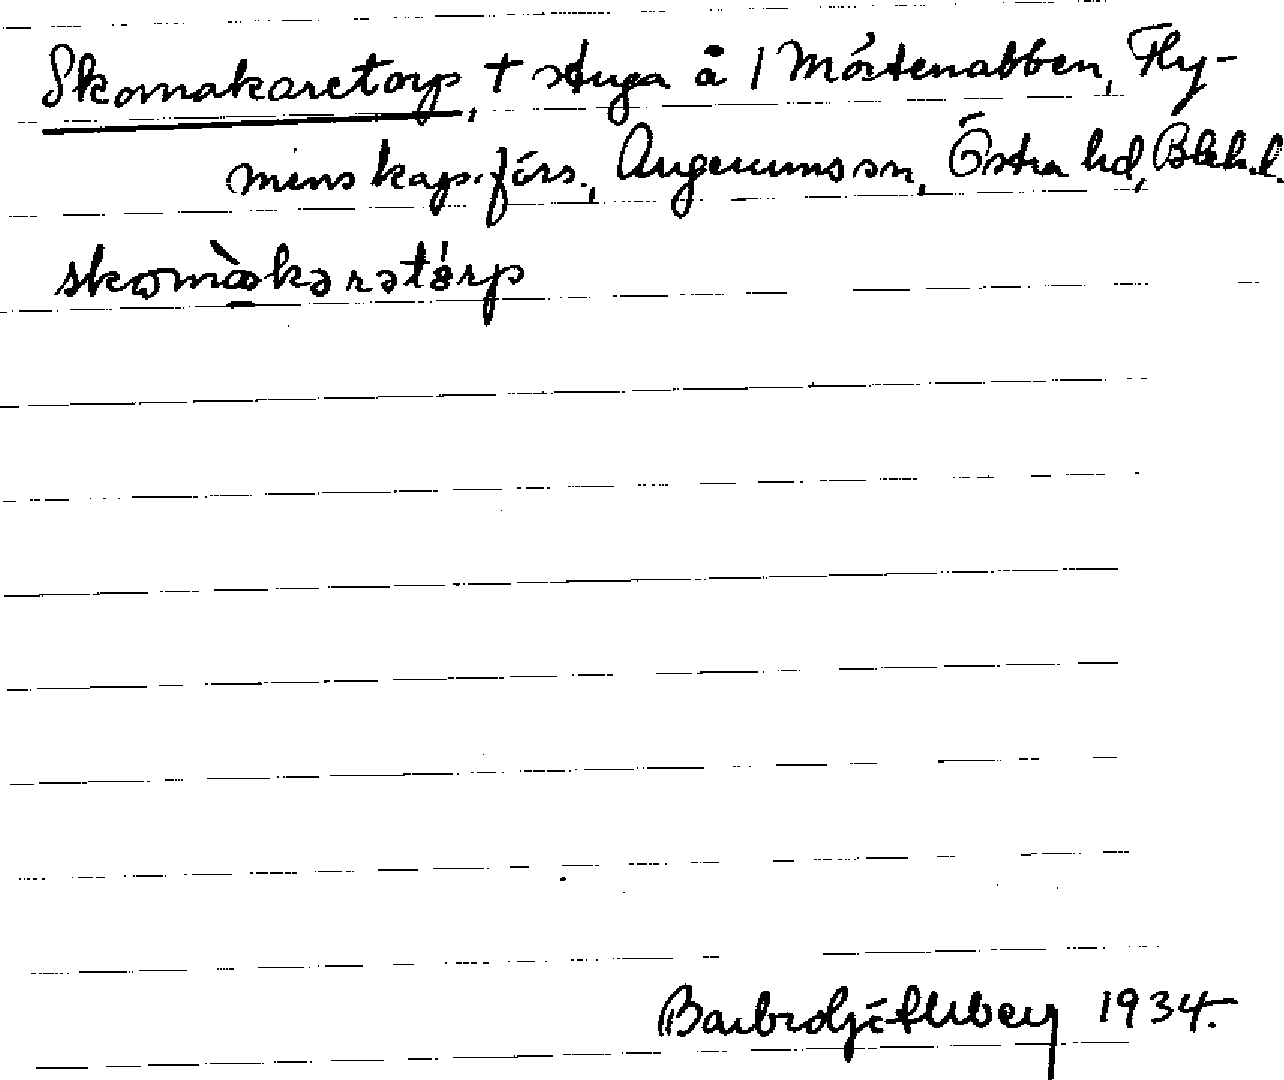 Skomakaretorp, † stuga å 1 Mörtenabben, Fly-
mins kap.förs., Augerums sn, Östra hd, Blek.l.
skomàkarətórp
1934.